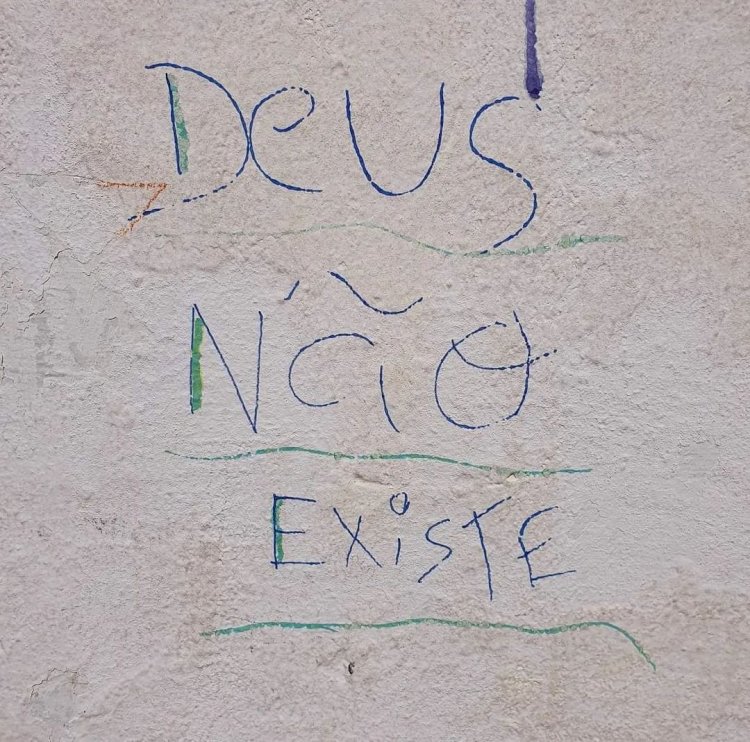 Deus
Não
Existe